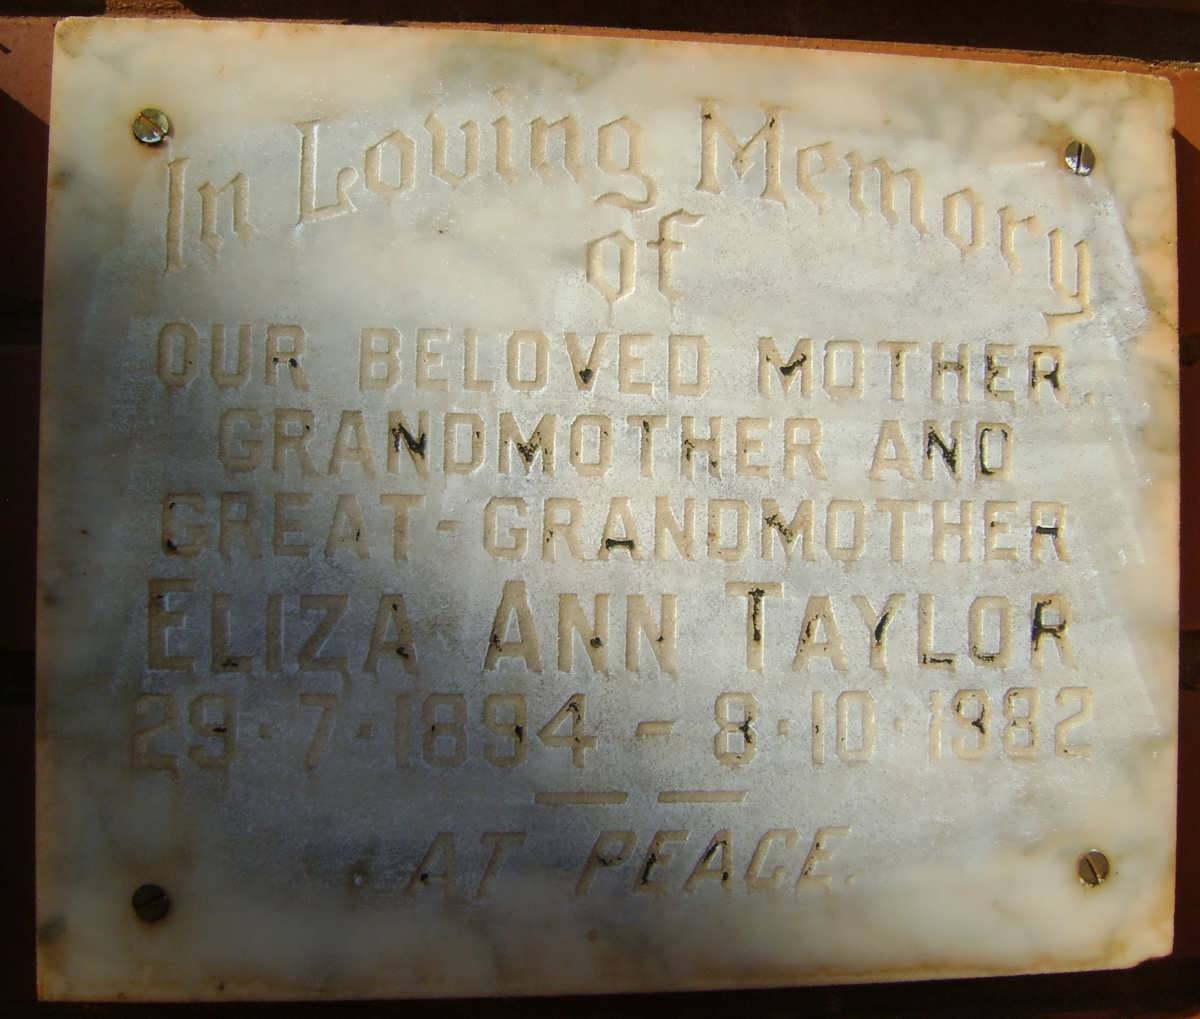 In Loving Memory
of
OUR BELOVED MOTHER.
GRANDMOTHER AND
GREAT-GRANDMOTHER
ELIZA ANN TAYLOR
29·7·1894 – 8·10·1982
AT PEACE.